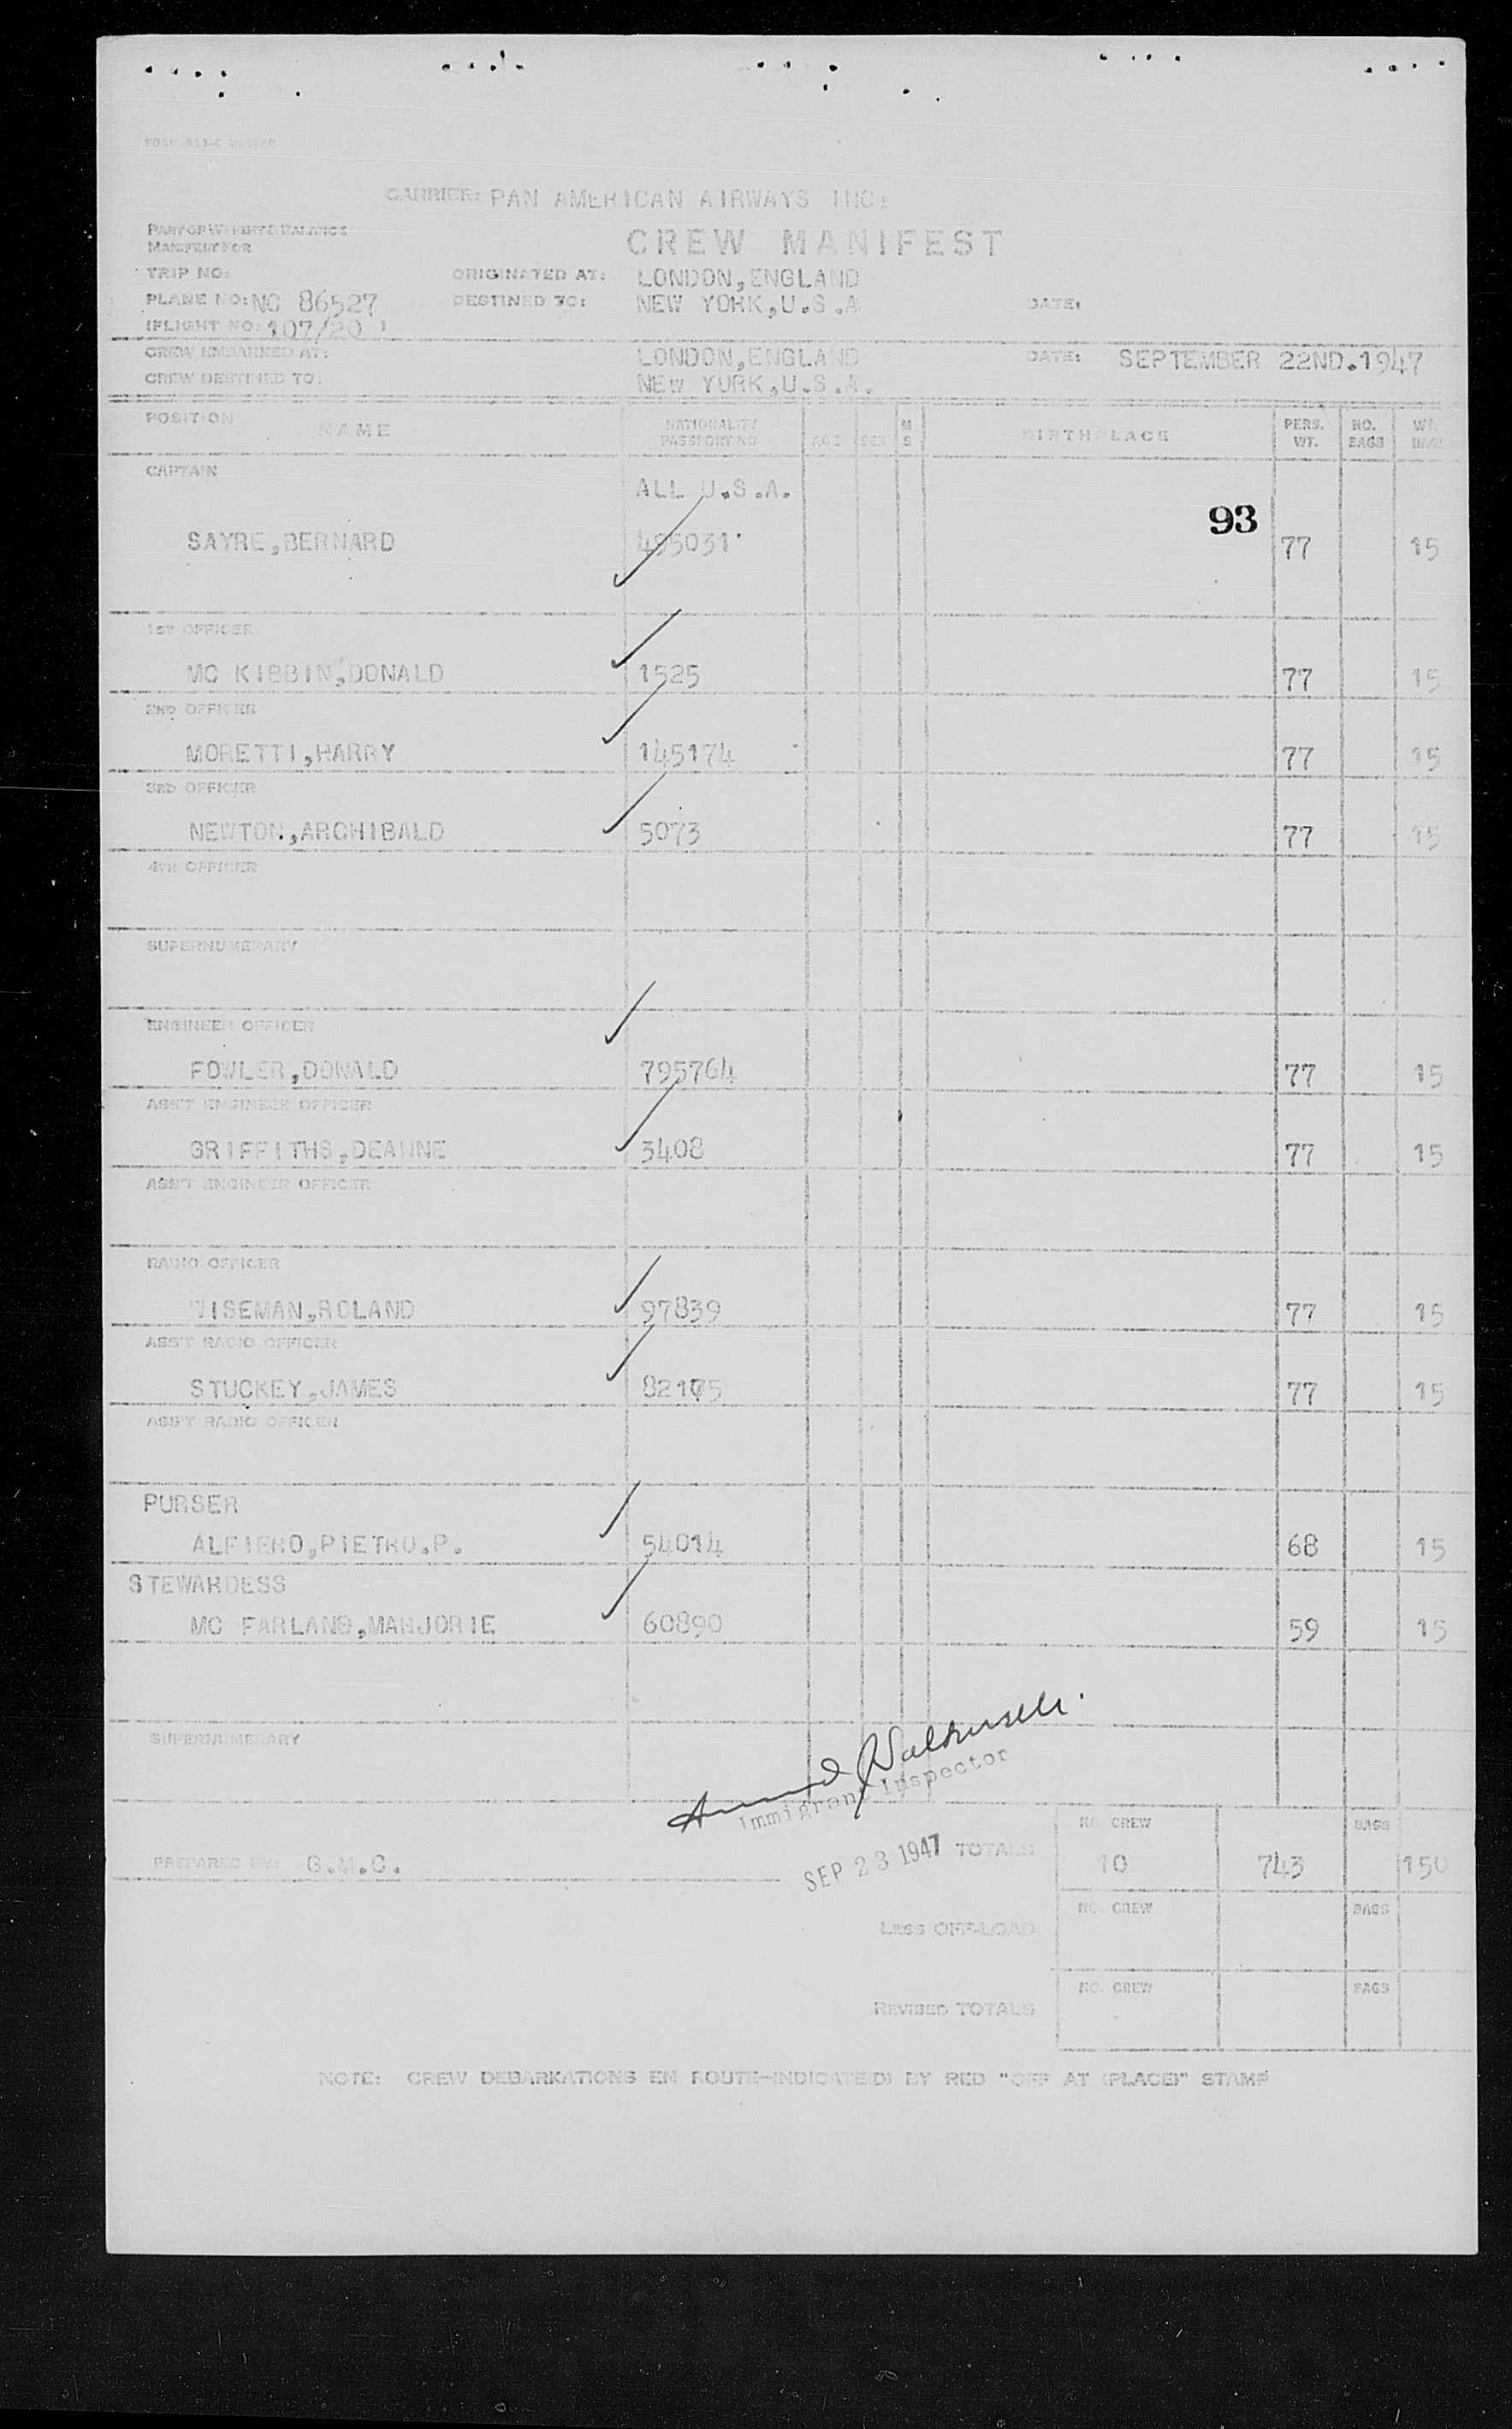 CARRIER: PAN AMERICAN AIRWAYS INC:
PART OF WEIGHT & BALANCE
MANIFEST FOR
CREW MANIFEST
TRIP NO:
ORIGINATED AT: LONDON,ENGLAND
PLANE NO: NC 86527
DESTINED TO: NEW YORK,U.S.A
DATE:
(FLIGHT NO: 107/20 )
CREW EMBARKED AT: LONDON,ENGLAND
DATE: SEPTEMBER 22ND.1947
CREW DESTINED TO: NEW YORK,U.S.A.
POSITION NAME NATIONALITY PASSPORT NO AGE SEX M S BIRTHPLACE PERS. WT. NO. BAGS WT. BAGS
CAPTAIN
ALL U.S.A.
93
SAYRE,BERNARD 495031 77 15
1ST OFFICER
MC KIBBIN,DONALD 1525 77 15
2ND OFFICER
MORETTI,HARRY 145174 77 15
3RD OFFICER
NEWTON,ARCHIBALD 5073 77 15
4TH OFFICER
SUPERNUMERARY
ENGINEER OFFICER
FOWLER,DONALD 795764 77 15
ASS'T ENGINEER OFFICER
GRIFFITHS,DEANNE 3408 77 15
ASS'T ENGINEER OFFICER
RADIO OFFICER
WISEMAN,ROLAND 97839 77 15
ASS'T RADIO OFFICER
STUCKEY,JAMES 77 15
ASS'T RADIO OFFICER
PURSER
ALFIERO,PIETRO.P. 54014 68 15
STEWARDESS
MC FARLAND,MARJORIE 60890 59 15
SUPERNUMERARY
Immigrant Inspector
NO. CREW BAGS
PREPARED BY: G.M.C. SEP 23 1947 TOTALS 10 743 150
NO. CREW BAGS
LESS OFF-LOAD
NO. CREW BAGS
REVISED TOTALS
NOTE: CREW DEBARKATIONS EN ROUTE-INDICATE(D) BY RED "OFF AT (PLACE)" STAMP